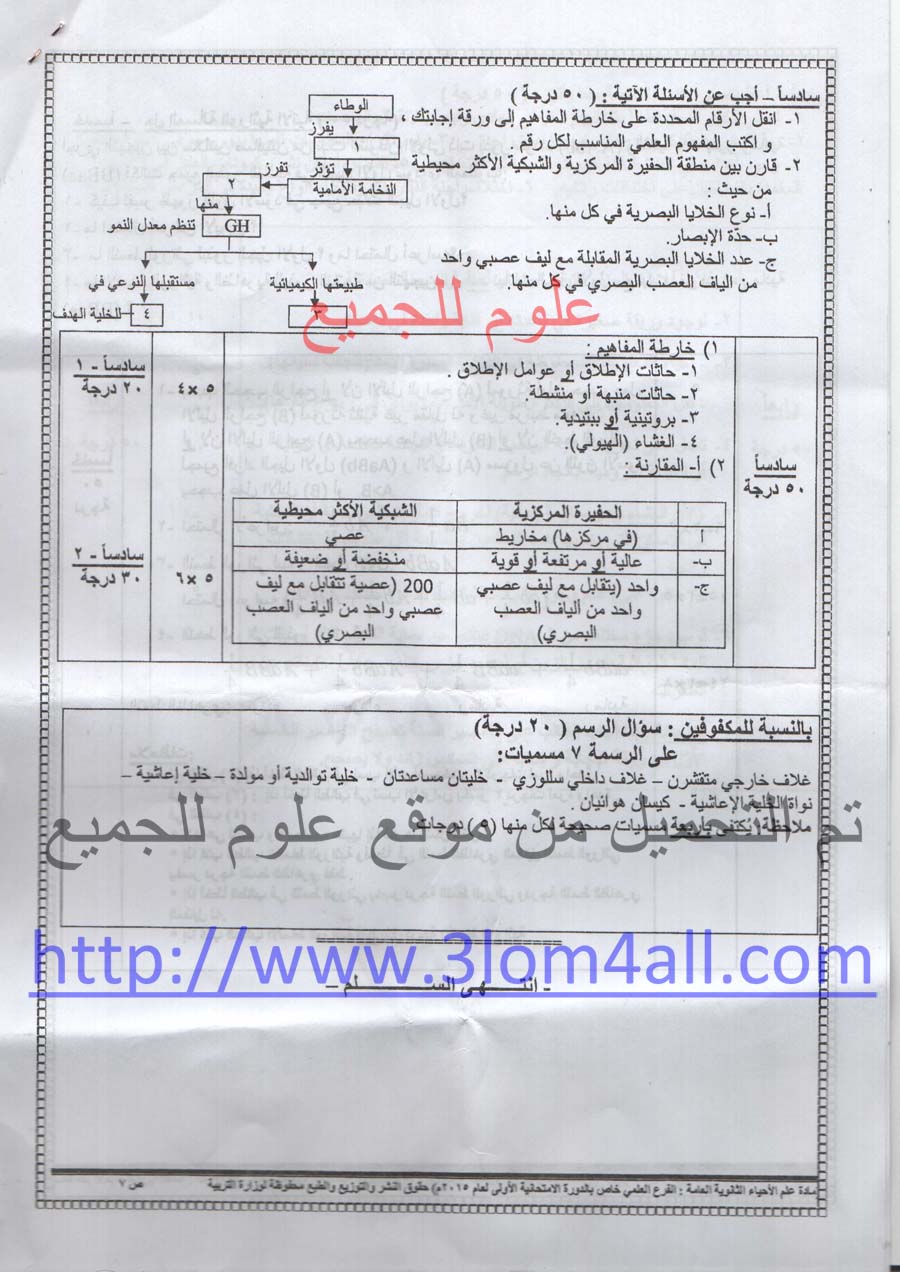 سادساً – أجب عن الأسئلة الآتية : ( ٥٠ درجة )
١- انقل الأرقام المحددة على خارطة المفاهيم إلى ورقة إجابتك ،
و اكتب المفهوم العلمي المناسب لكل رقم .
٢- قارن بين منطقة الحفيرة المركزية والشبكية الأكثر محيطية
من حيث :
أ- نوع الخلايا البصرية في كل منها.
ب- حدّة الإبصار.
ج- عدد الخلايا البصرية المقابلة مع ليف عصبي واحد
من الياف العصب البصري في كل منها.
الوطاء
يفرز
١
تؤثر
النخامة الأمامية
تفرز
٢
منها
GH
تنظم معدل النمو
طبيعتها الكيميائية
مستقبلها النوعي في
٣
٤
للخلية الهدف
علوم للجميع
سادساً
٥٠ درجة
١) خارطة المفاهيم :
١- حاثات الإطلاق أو عوامل الإطلاق .
٢- حاثات منبهة أو منشطة.
٣- بروتينية أو ببتيدية.
٤- الغشاء (الهيولي).
٥ × ٤
سادساً - ١
٢٠ درجة
٢) أ- المقارنة :
الحفيرة المركزية
الشبكية الأكثر محيطية
أ
(في مركزها) مخاريط
عصي
ب-
عالية أو مرتفعة أو قوية
منخفضة أو ضعيفة
ج-
واحد (يتقابل مع ليف عصبي
واحد من ألياف العصب
البصري)
200 (عصية تتقابل مع ليف
عصبي واحد من ألياف العصب
البصري)
٥ × ٦
سادساً - ٢
٣٠ درجة
بالنسبة للمكفوفين : سؤال الرسم ( ٢٠ درجة)
على الرسمة ٧ مسميات:
غلاف خارجي متقشرن – غلاف داخلي سللوزي - خليتان مساعدتان - خلية توالدية أو مولدة - خلية إعاشية –
نواة الخلية الإعاشية - كيسان هوائيان .
ملاحظة: يكتفى بأربعة مسميات صحيحة لكل منها (٥) درجات.
تم التحميل من موقع علوم للجميع
http://www.3lom4all.com
- انتـــهى الســـــلم –
مادة علم الأحياء الثانوية العامة : الفرع العلمي خاص بالدورة الامتحانية الأولى لعام ٢٠١٥م) حقوق النشر والتوزيع والطبع محفوظة لوزارة التربية
ص ٧